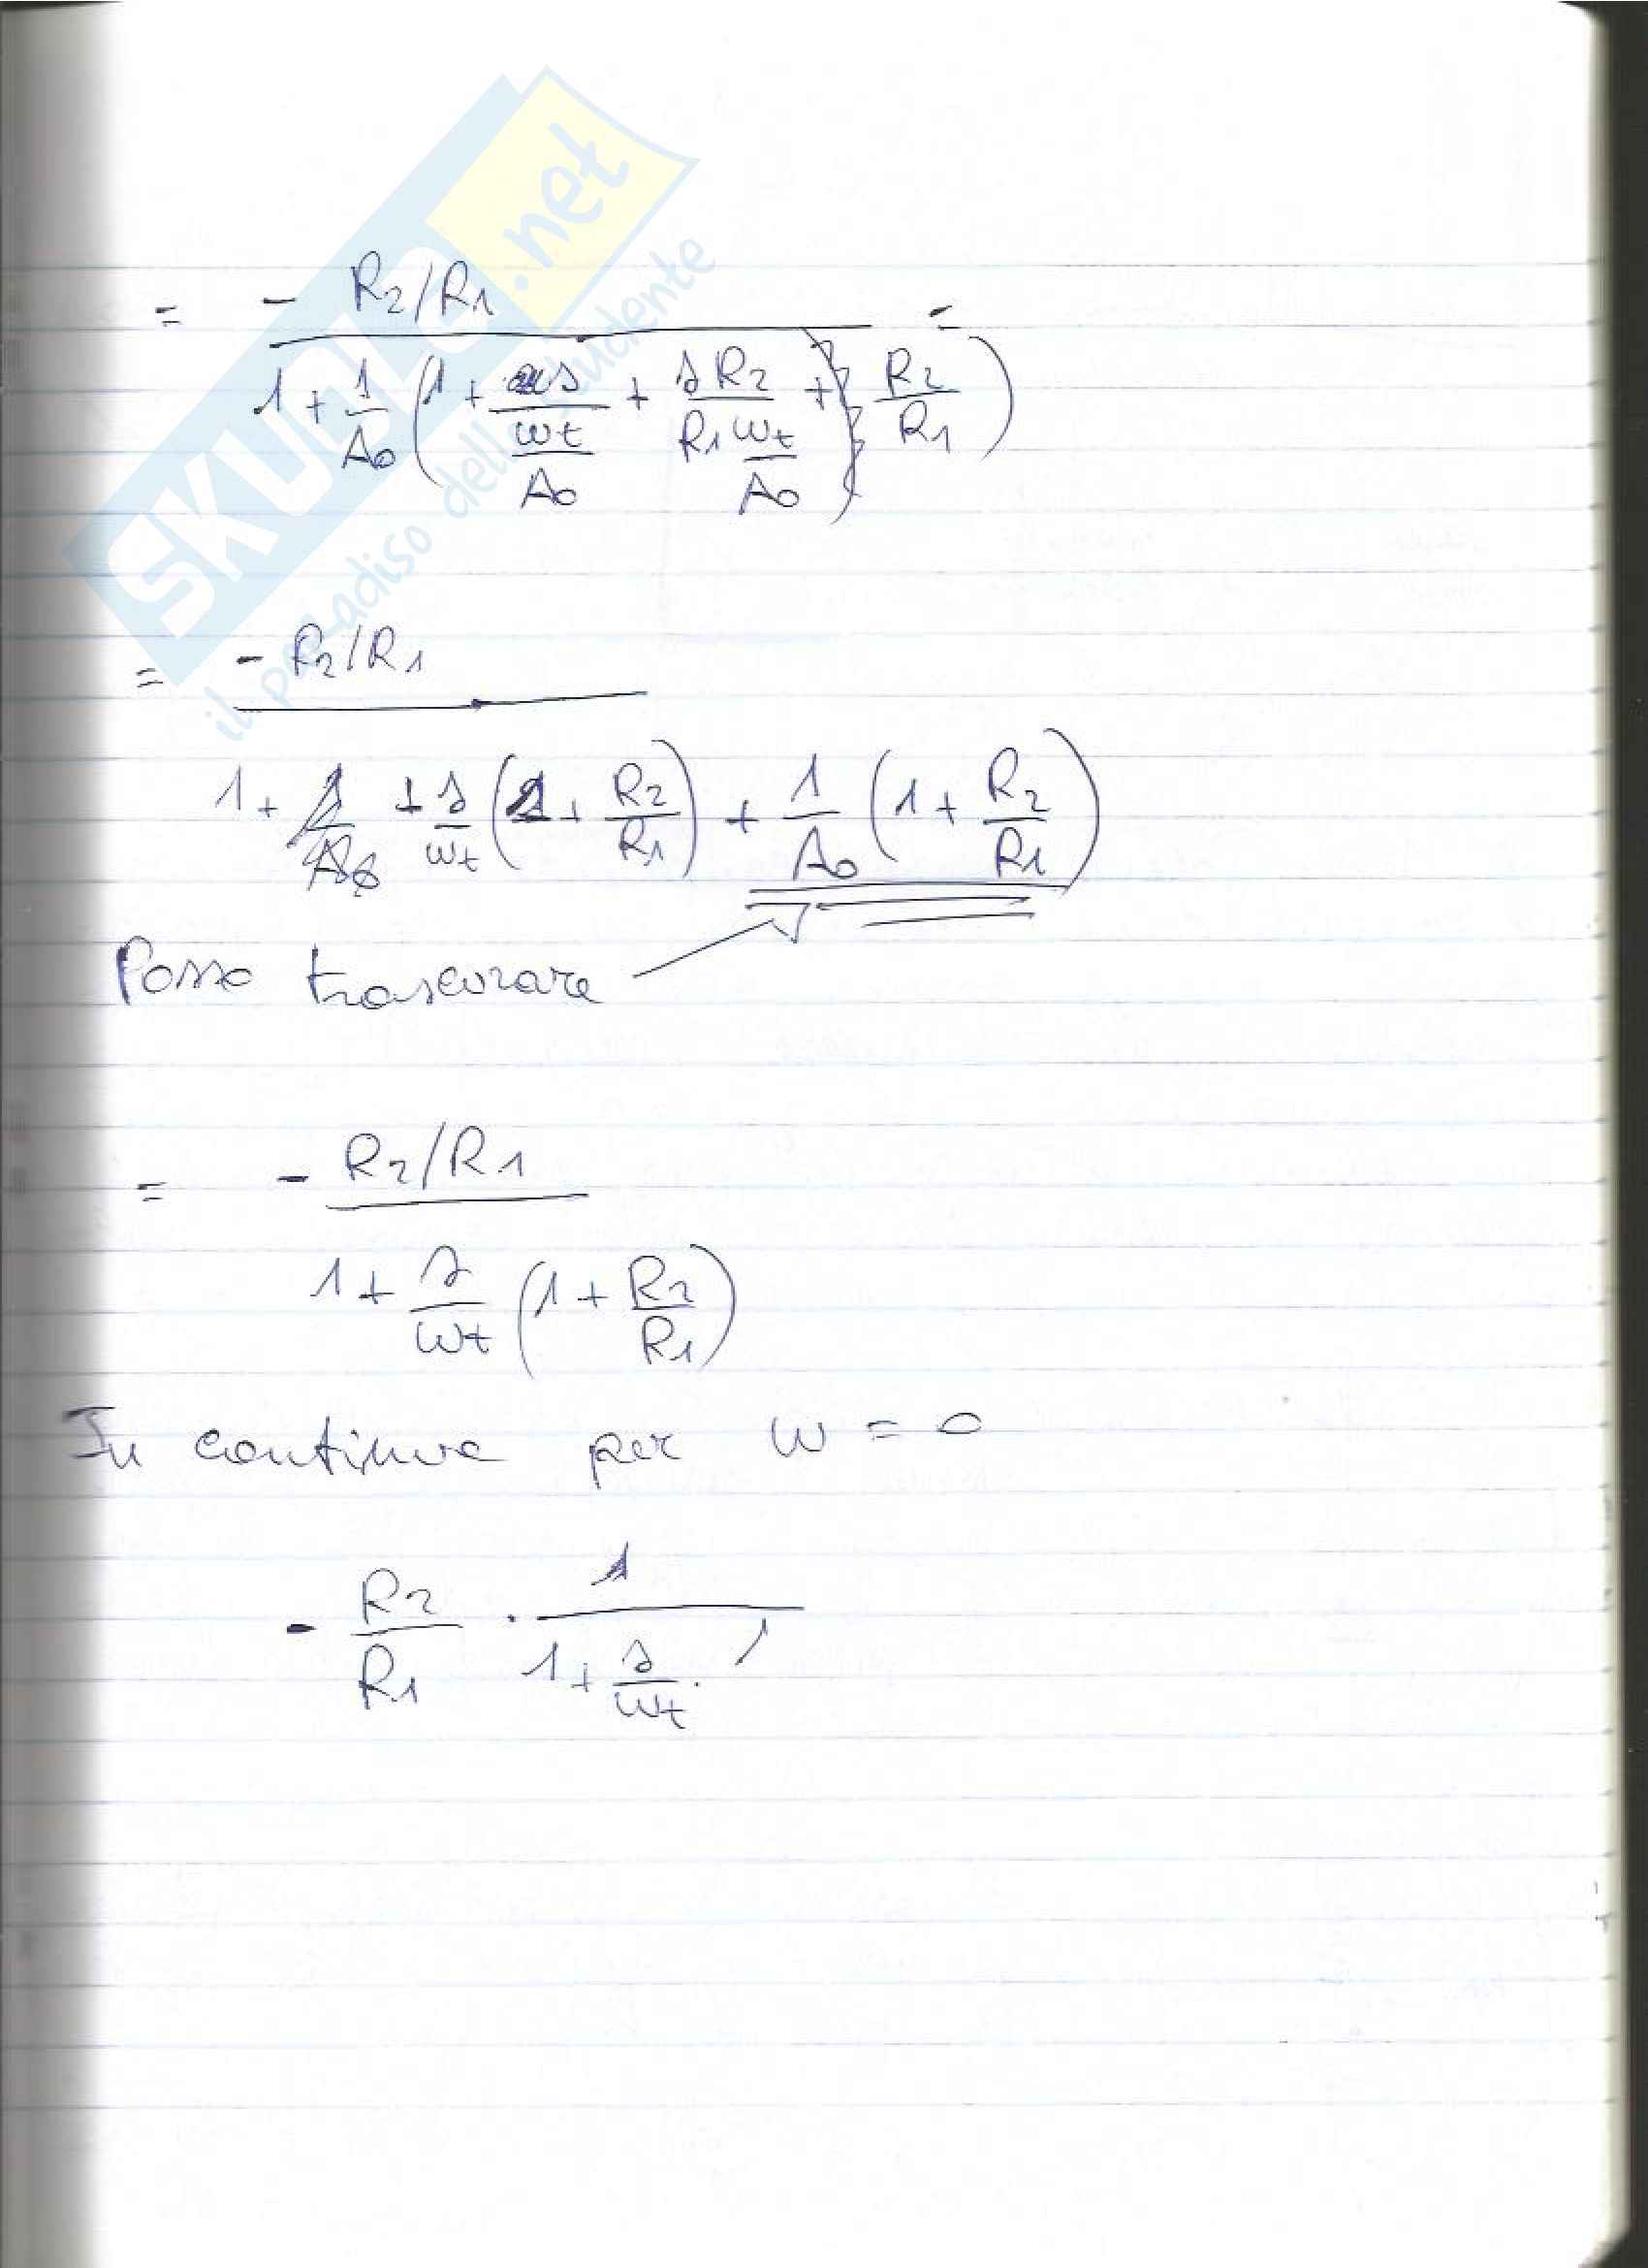 SKUOLA.net
il paradiso dello studente
= - R2/R1 / (1 + 1/A0 (1 + s/(ωt/A0) + s R2/(R1 ωt/A0) + R2/R1)) =
= - R2/R1 / (1 + s/ωt (1 + R2/R1) + 1/A0 (1 + R2/R1))
Posso trascurare
= - R2/R1 / (1 + s/ωt (1 + R2/R1))
In continua per ω = 0
- R2/R1 · 1 / (1 + s/ωt · 1